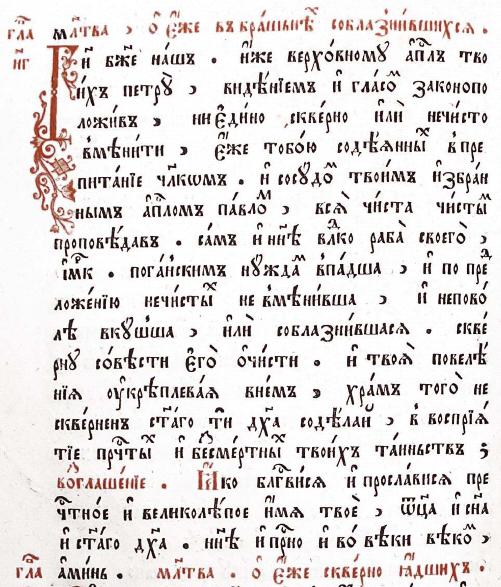 гла҃ мл҃тва , ѻ҆ е҆́же въ бра́шнѣхъ соблазни́вшихся .
н҃г Гд҃и бж҃е на́шъ . и҆́же верхо́вному а҆пⷭ҇лъ тво
и́хъ петру̀ , видѣ́нїемъ и҆ гла́сомъ законопо
ложи́въ , ни є҆ди́но скве́рно и҆лѝ нечи́сто
вмѣни́ти , е҆́же тобо́ю содѣ́янныⷯ в̾пре
пита́нїе чл҃кѡмъ . и҆ сосу́доⷨ твои́мъ и҆збра́н
нымъ а҆пⷭ҇ломъ па́вломъ , вся̀ чи́ста чи́стыⷨ
проповѣ́давъ . са́мъ и҆ нн҃ѣ влⷣко раба̀ своего̀ ,
и҆́мкъ . пога́нскимъ ну́ждаⷨ впа́дша , и҆ по преⷣ
ложе́нїю нечи́стыⷯ не вмѣни́вша , и҆ непово́
лѣ вкꙋ́шша , и҆лѝ соблазни́вшася . скве́
рну со́вѣсти є҆го̀ ѡ҆чи́сти . и҆ твоя̀ повелѣ
нїя ᲂу҆крѣплева́я вне́мъ , хра́мъ того̀ не
скве́рненъ ст҃а́го ти дх҃а содѣ́лай , в̾ воспрїя́
тїе прⷱ҇тыⷯ и҆ бесме́ртныⷯ твои́хъ та́иньствъ ;
воз̾глаше́нїе . Ꙗ҆́ко блгⷭ҇ви́ся и҆ просла́вися пре
чⷭ҇тно́е и҆ великолѣ́пое и҆́мя твоѐ , ѻ҆ц҃а̀ и҆ сн҃а
и҆ ст҃а́го дх҃а . нн҃ѣ и҆ при́сно и҆ во́ вѣки вѣко́мъ ,
гла҃ а҆ми́нь . мл҃тва . ѻ҆ е҆́же скве́рно ꙗ҆́дшихъ .